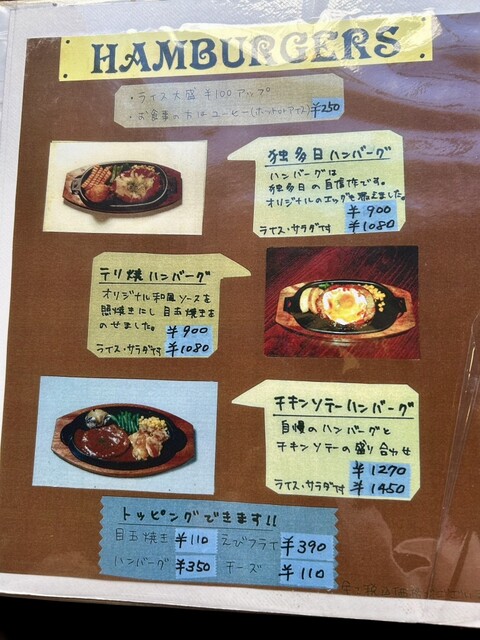 HAMBURGERS
・ライス大盛 ¥100アップ
・お食事のお供コーヒー(ホットorアイス) ¥250
独多日ハンバーグ
ハンバーグは
独多日の自信作です。
オリジナルのエッグを添えました。
¥900
ライス・サラダ付 ¥1080
テリ焼ハンバーグ
オリジナル和風ソースを
照焼きにし目玉焼きを
のせました。
¥900
ライス・サラダ付 ¥1080
チキンソテーハンバーグ
自慢のハンバーグと
チキンソテーの盛り合わせ
¥1270
ライス・サラダ付 ¥1450
トッピングできます!!
目玉焼き ¥110 えびフライ ¥390
ハンバーグ ¥350 チーズ ¥110